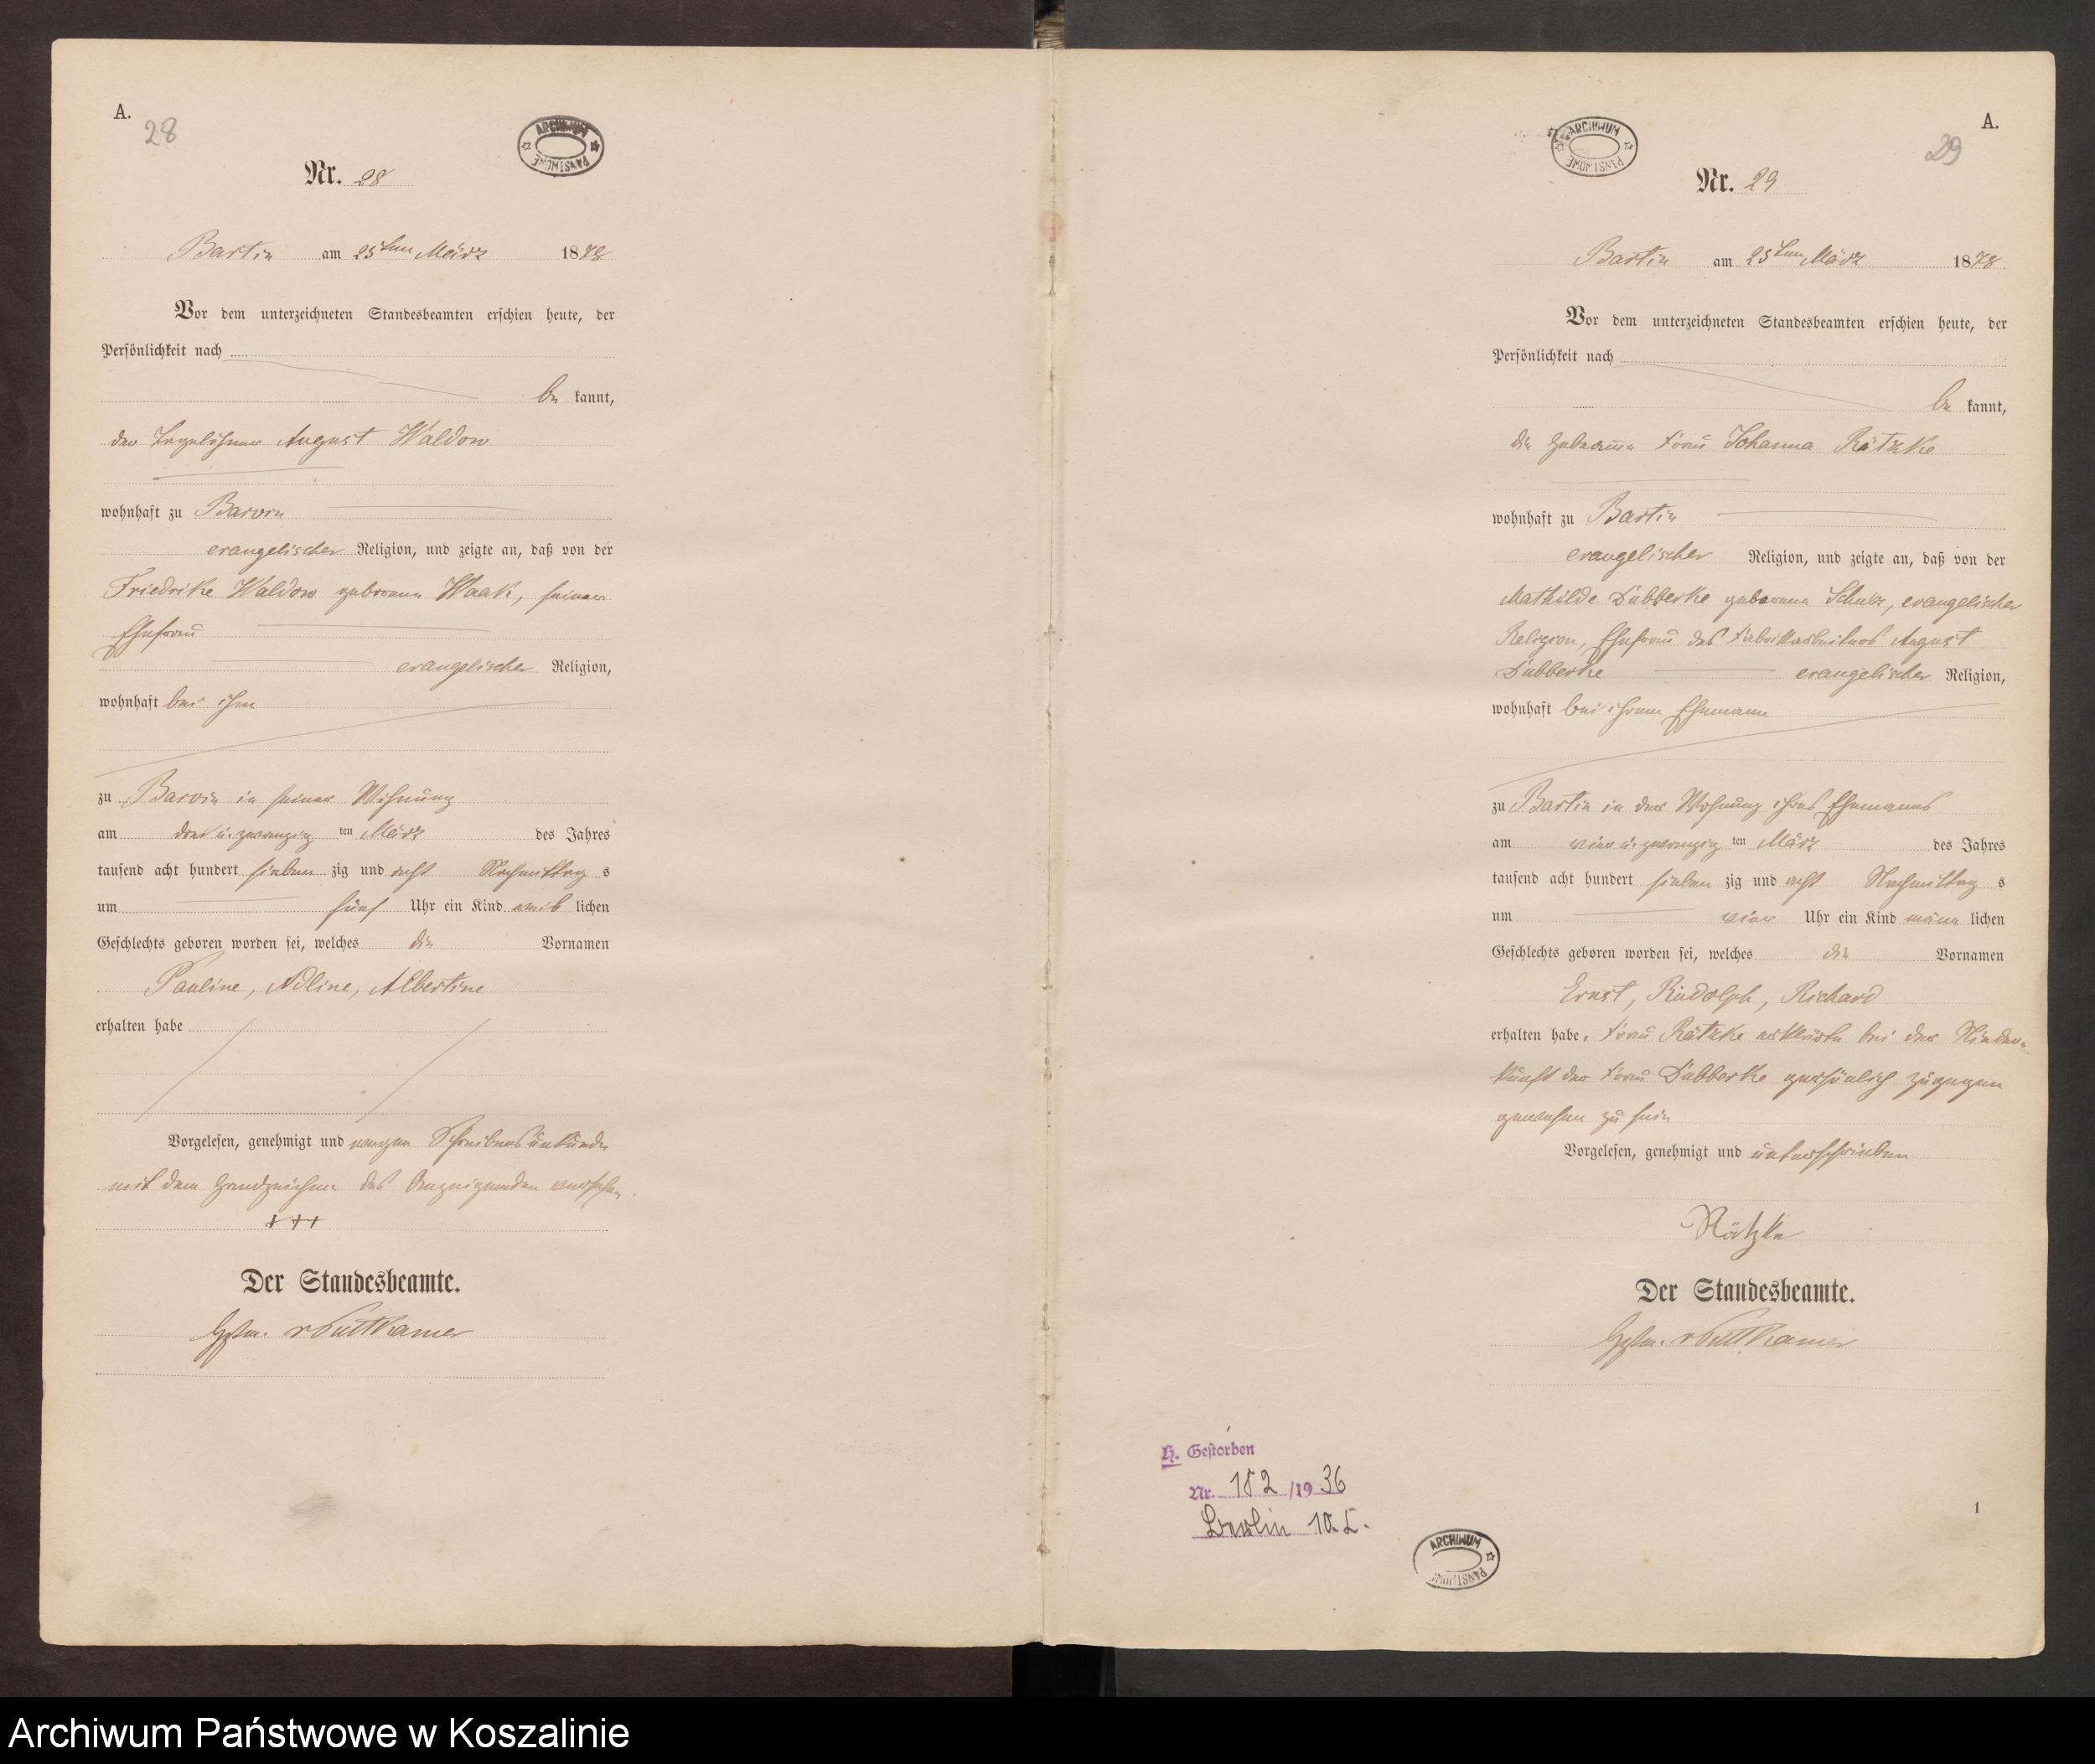 A.
28
ARCHIWUM PAŃSTWOWE
Nr. 28
Bartin am 25ten März 1878
Vor dem unterzeichneten Standesbeamten erschien heute, der
Persönlichkeit nach
be kannt,
der Tagelöhner August Waldow
wohnhaft zu Barvin
evangelischer Religion, und zeigte an, daß von der
Friedrike Waldow geborene Haak, seiner
Ehefrau
evangelischer Religion,
wohnhaft bei ihm
zu Barvin in seiner Wohnung
am drei u. zwanzig ten März des Jahres
tausend acht hundert sieben zig und acht Nachmittag s
um fünf Uhr ein Kind weib lichen
Geschlechts geboren worden sei, welches die Vornamen
Pauline, Adline, Albertine
erhalten habe
Vorgelesen, genehmigt und wegen Schreibensunkunde
mit dem Handzeichen des Anzeigenden versehen.
+++
Der Standesbeamte.
v Puttkamer
A.
29
ARCHIWUM PAŃSTWOWE
Nr. 29
Bartin am 25ten März 1878
Vor dem unterzeichneten Standesbeamten erschien heute, der
Persönlichkeit nach
be kannt,
die Hebamme Frau Johanna Rätzke
wohnhaft zu Bartin
evangelischer Religion, und zeigte an, daß von der
Mathilde Dubberke geborene Schulz, evangelischer
Religion, Ehefrau des Fabrikarbeiters August
Dubberke evangelischer Religion,
wohnhaft bei ihrem Ehemann
zu Bartin in der Wohnung ihres Ehemanns
am vier u. zwanzig ten März des Jahres
tausend acht hundert sieben zig und acht Nachmittag s
um vier Uhr ein Kind männ lichen
Geschlechts geboren worden sei, welches die Vornamen
Ernst, Rudolph, Richard
erhalten habe. Frau Rätzke erklärte bei der Nieder-
kunft der Frau Dubberke persönlich zugegen
gewesen zu sein
Vorgelesen, genehmigt und unterschrieben
Rätzke
Der Standesbeamte.
v Puttkamer
H. Gestorben
Nr. 182 /19 36
Berlin
1
ARCHIWUM PAŃSTWOWE
Archiwum Państwowe w Koszalinie